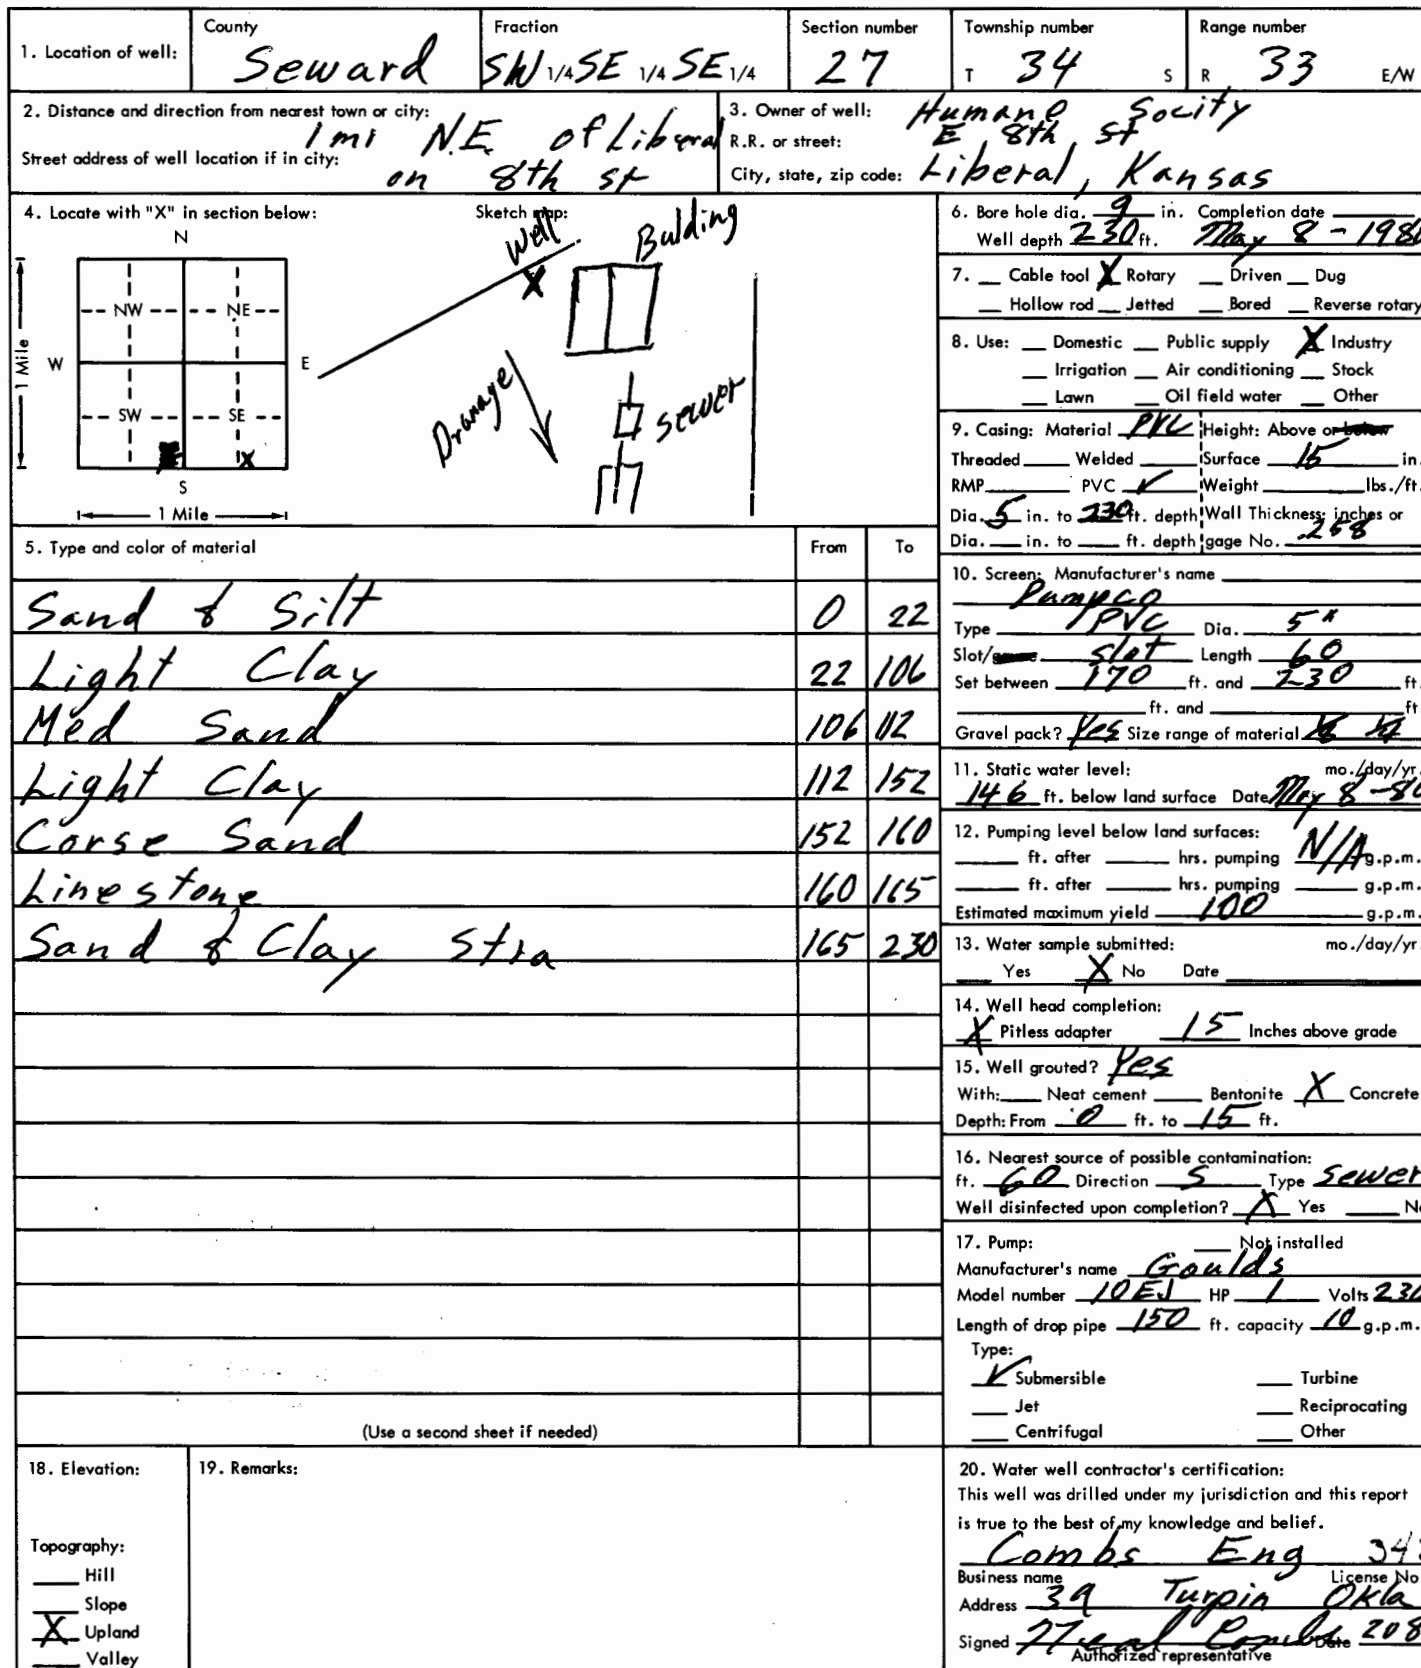 1. Location of well: County Seward Fraction SW 1/4 SE 1/4 SE 1/4 Section number 27 Township number T 34 S Range number R 33 E/W
2. Distance and direction from nearest town or city: 1 mi N.E. of Liberal
Street address of well location if in city: on 8th st
3. Owner of well: Humane Socity
R.R. or street: E 8th st
City, state, zip code: Liberal, Kansas
4. Locate with "X" in section below:
N
NW NE
W E
SW SE
X
S
1 Mile
1 Mile
Sketch map:
Well
X
Bulding
Dranage
Sewer
5. Type and color of material From To
Sand & Silt 0 22
Light Clay 22 106
Med Sand 106 112
Light Clay 112 152
Corse Sand 152 160
Linestone 160 165
Sand & Clay Stra 165 230
(Use a second sheet if needed)
6. Bore hole dia. 9 in. Completion date
Well depth 230 ft. May 8 - 198
7. Cable tool X Rotary Driven Dug
Hollow rod Jetted Bored Reverse rotary
8. Use: Domestic Public supply X Industry
Irrigation Air conditioning Stock
Lawn Oil field water Other
9. Casing: Material PVC Height: Above or below
Threaded Welded Surface 15 in.
RMP PVC ✓ Weight lbs./ft.
Dia. 5 in. to 230 ft. depth Wall Thickness: inches or
Dia. in. to ft. depth gage No. .258
10. Screen: Manufacturer's name
Pumpco
Type PVC Dia. 5"
Slot/ slot Length 60
Set between 170 ft. and 230 ft.
ft. and ft.
Gravel pack? Yes Size range of material
11. Static water level: mo./day/yr.
146 ft. below land surface Date May 8 - 8
12. Pumping level below land surfaces:
ft. after hrs. pumping N/A g.p.m.
ft. after hrs. pumping g.p.m.
Estimated maximum yield 100 g.p.m.
13. Water sample submitted: mo./day/yr.
Yes X No Date
14. Well head completion:
X Pitless adapter 15 Inches above grade
15. Well grouted? Yes
With: Neat cement Bentonite X Concrete
Depth: From 0 ft. to 15 ft.
16. Nearest source of possible contamination:
ft. 60 Direction S Type Sewer
Well disinfected upon completion? X Yes No
17. Pump: Not installed
Manufacturer's name Goulds
Model number 10EJ HP 1 Volts 230
Length of drop pipe 150 ft. capacity 10 g.p.m.
Type:
✓ Submersible Turbine
Jet Reciprocating
Centrifugal Other
18. Elevation:
Topography:
Hill
Slope
X Upland
Valley
19. Remarks:
20. Water well contractor's certification:
This well was drilled under my jurisdiction and this report
is true to the best of my knowledge and belief.
Combs Eng 343
Business name License No
Address 39 Turpin Okla
Signed Neal Combs Date 208
Authorized representative